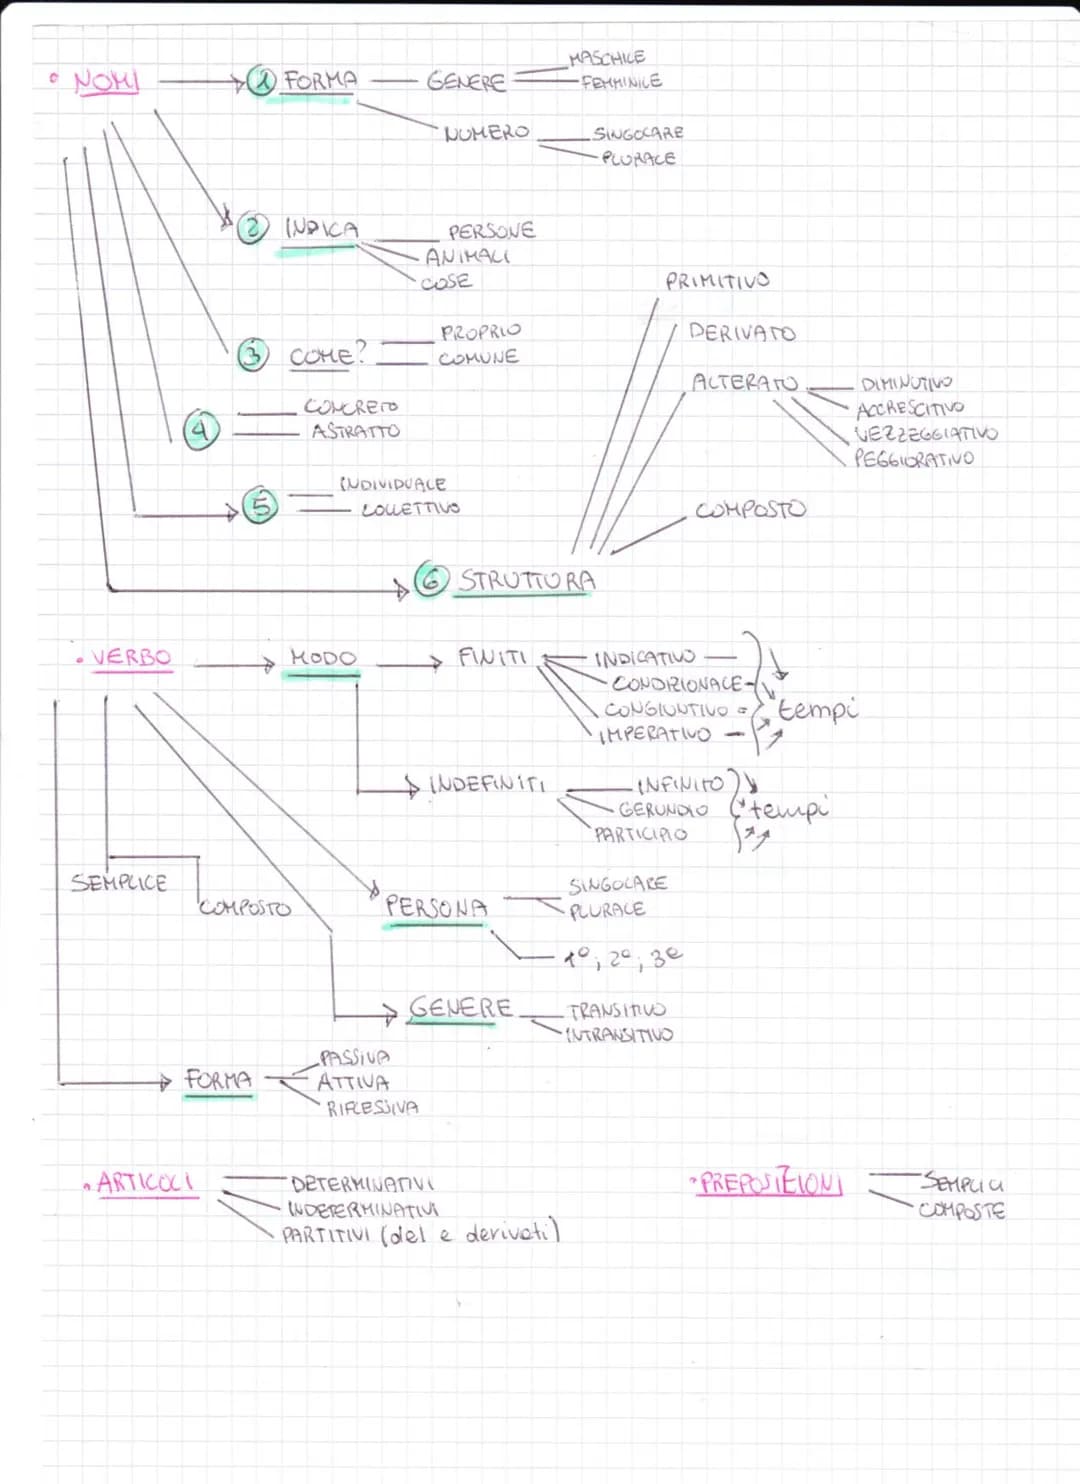 • NOMI
1 FORMA
GENERE
MASCHILE
FEMMINILE
NUMERO
SINGOLARE
PLURALE
2 INDICA
PERSONE
ANIMALI
COSE
3 COME?
PROPRIO
COMUNE
4
CONCRETO
ASTRATTO
5
INDIVIDUALE
COLLETTIVO
6 STRUTTURA
PRIMITIVO
DERIVATO
ALTERATO
DIMINUTIVO
ACCRESCITIVO
VEZZEGGIATIVO
PEGGIORATIVO
COMPOSTO
• VERBO
MODO
FINITI
INDICATIVO
CONDIZIONALE
CONGIUNTIVO
IMPERATIVO
tempi
INDEFINITI
INFINITO
GERUNDIO
PARTICIPIO
tempi
SEMPLICE
COMPOSTO
PERSONA
SINGOLARE
PLURALE
1ª; 2ª; 3ª
GENERE
TRANSITIVO
INTRANSITIVO
FORMA
PASSIVA
ATTIVA
RIFLESSIVA
• ARTICOLI
DETERMINATIVI
INDETERMINATIVI
PARTITIVI (del e derivati)
• PREPOSIZIONI
SEMPLICI
COMPOSTE